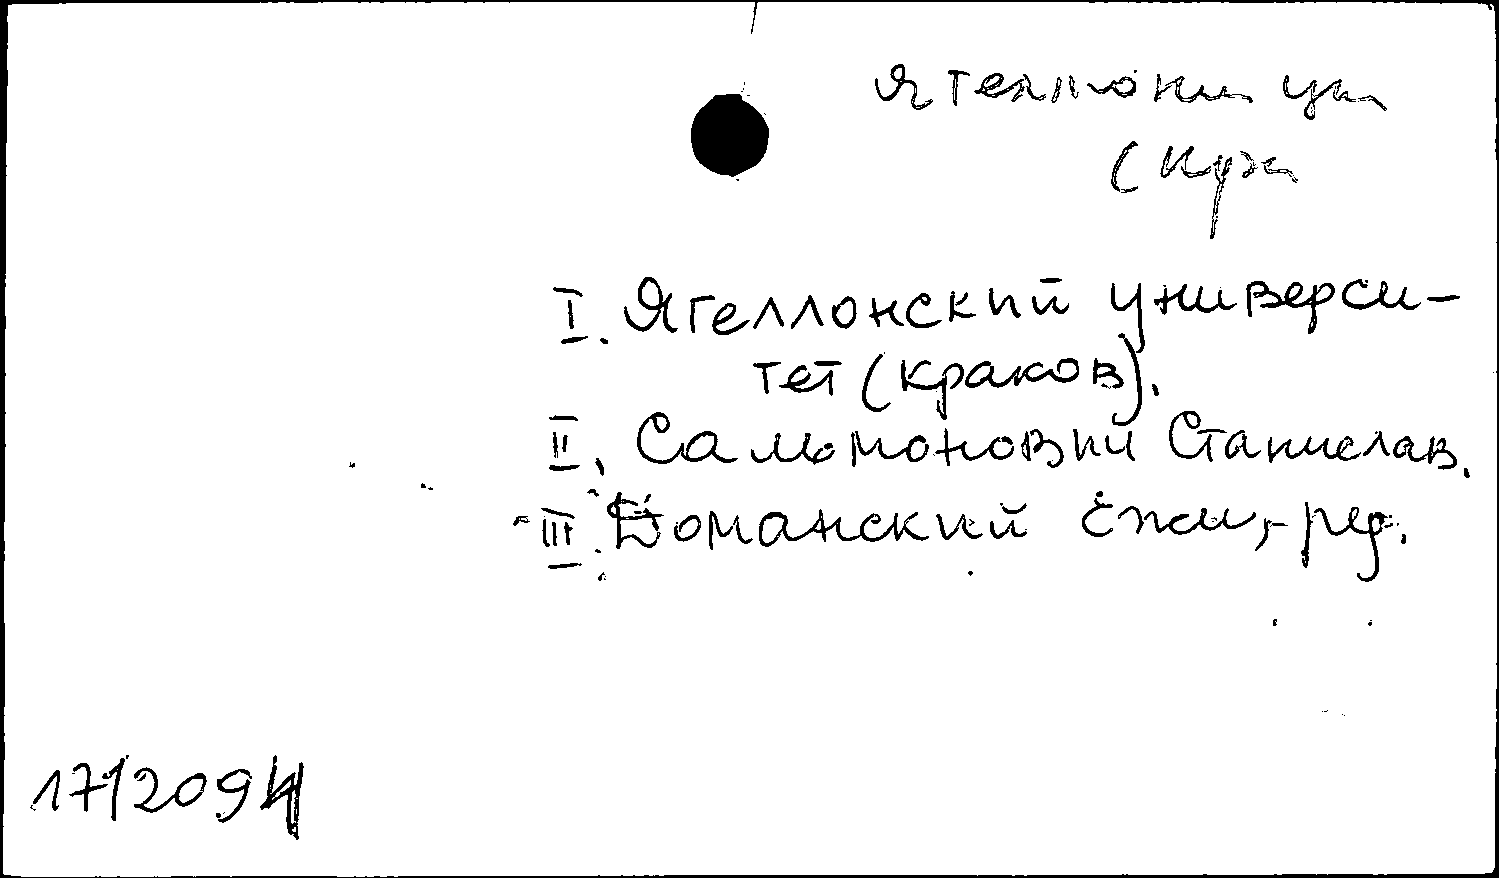 Ягеллони ун
(Кра
I. Ягеллонский универси-
тет (Краков).
II. Сальмонович Станислав.
III. Доманский Ежи,-ред.
17/2094